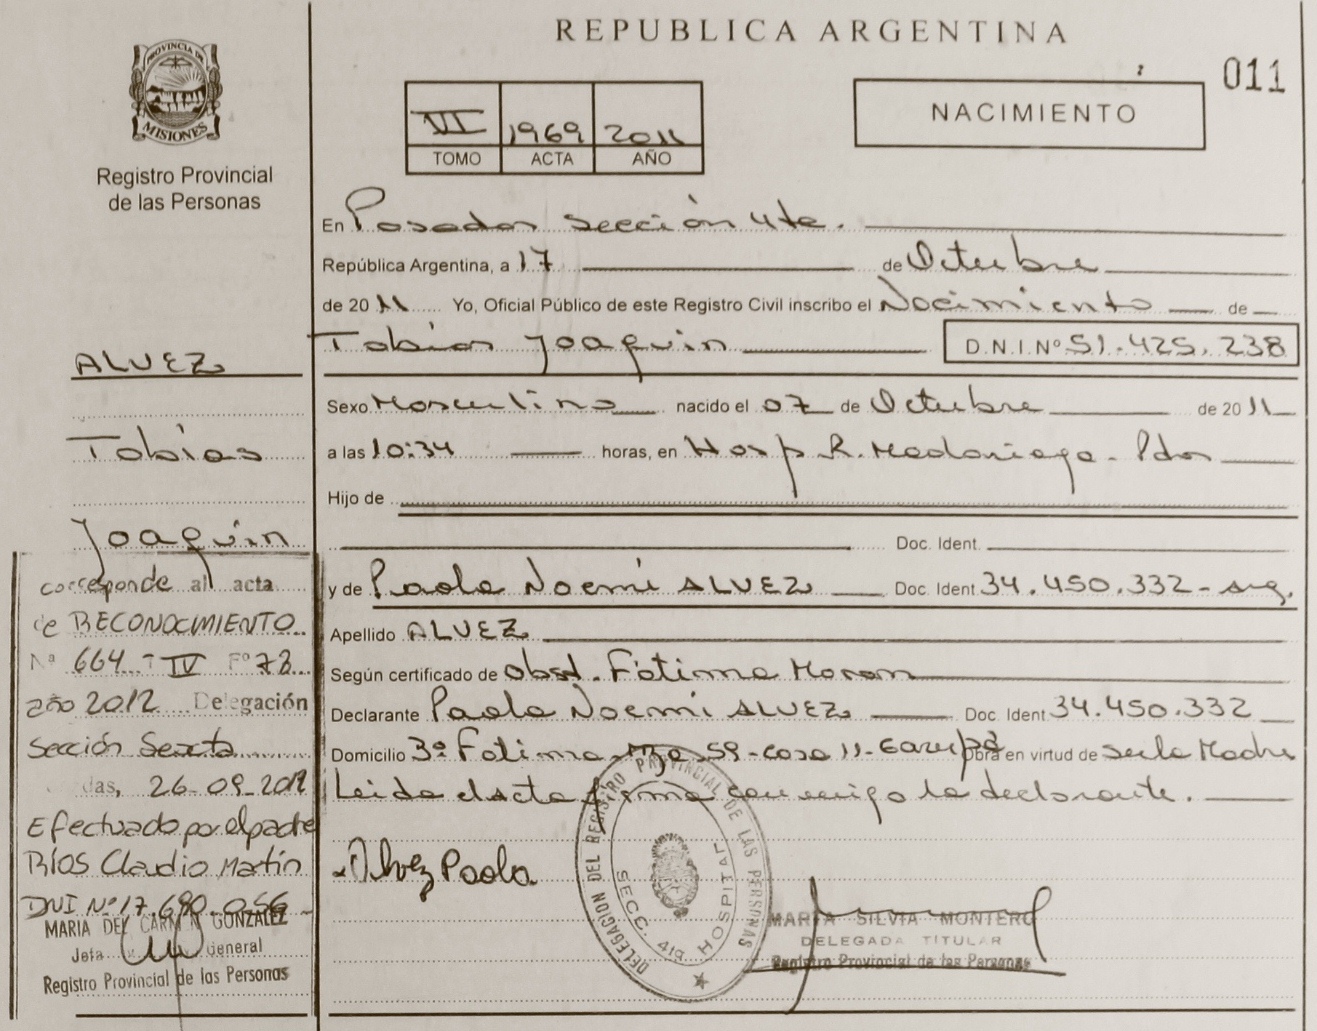 REPUBLICA ARGENTINA
011
PROVINCIA DE
MISIONES
Registro Provincial
de las Personas
VI 1969 2011
TOMO ACTA AÑO
NACIMIENTO
En Posadas Sección 4ta.
República Argentina, a 17 de Octubre
de 2011 Yo, Oficial Público de este Registro Civil inscribo el Nacimiento de
Tobias Joaquin D.N.I.Nº 51.425.238
Sexo Masculino nacido el 07 de Octubre de 2011
a las 10:34 horas, en Hosp R. Madariaga - Pdas
Hijo de
Doc. Ident.
y de Paola Noemi ALVEZ Doc. Ident 34.450.332 - arg.
Apellido ALVEZ
Según certificado de obst. Fátima Moron
Declarante Paola Noemi ALVEZ Doc. Ident 34.450.332
Domicilio 3º Fatima - Mza 59 - casa 11 - Garupá Obra en virtud de ser la Madre
Leida el acta firma conmigo la declarante.
Alvez Paola
DELEGACION DEL REGISTRO PROVINCIAL DE LAS PERSONAS
SECC. 4ta. HOSPITAL
MARTA SILVIA MONTERO
DELEGADA TITULAR
Registro Provincial de las Personas
ALVEZ
Tobias
Joaquin
corresponde al acta
de RECONOCIMIENTO
Nª 664 T IV Fº 78
año 2012 Delegación
Sección Sexta
das, 26-09-2012
Efectuado por el padre
RÍOS Claudio Martín
DNI Nº 17.690.056
MARIA DEL CARMEN GONZALEZ
Jefa General
Registro Provincial de las Personas